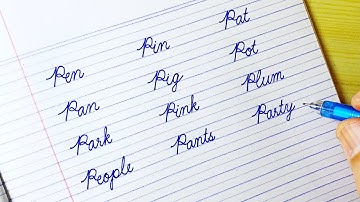 Pen Pin Pat
Pan Pig Pot
Park Pink Plum
People Pants Party